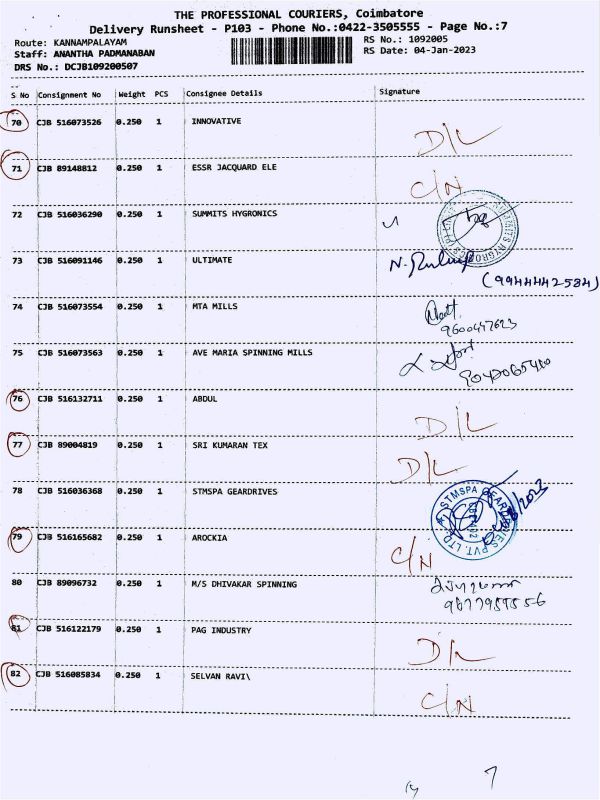 THE PROFESSIONAL COURIERS, Coimbatore
Delivery Runsheet - P103 - Phone No.:0422-3505555 - Page No.:7
Route: KANNAMPALAYAM RS No.: 1092005
Staff: ANANTHA PADMANABAN RS Date: 04-Jan-2023
DRS No.: DCJB109200507
S No Consignment No Weight PCS Consignee Details Signature
70 CJB 516073526 0.250 1 INNOVATIVE D/L
71 CJB 89148812 0.250 1 ESSR JACQUARD ELE C/N
72 CJB 516036290 0.250 1 SUMMITS HYGRONICS
73 CJB 516091146 0.250 1 ULTIMATE
(9944442584)
74 CJB 516073554 0.250 1 MTA MILLS
9600447623
75 CJB 516073563 0.250 1 AVE MARIA SPINNING MILLS
76 CJB 516132711 0.250 1 ABDUL D/L
77 CJB 89004819 0.250 1 SRI KUMARAN TEX D/L
78 CJB 516036368 0.250 1 STMSPA GEARDRIVES STMSPA GEARDRIVES PVT. LTD.
79 CJB 516165682 0.250 1 AROCKIA C/N
80 CJB 89096732 0.250 1 M/S DHIVAKAR SPINNING
81 CJB 516122179 0.250 1 PAG INDUSTRY D/L
82 CJB 516085834 0.250 1 SELVAN RAVI\ C/N
7